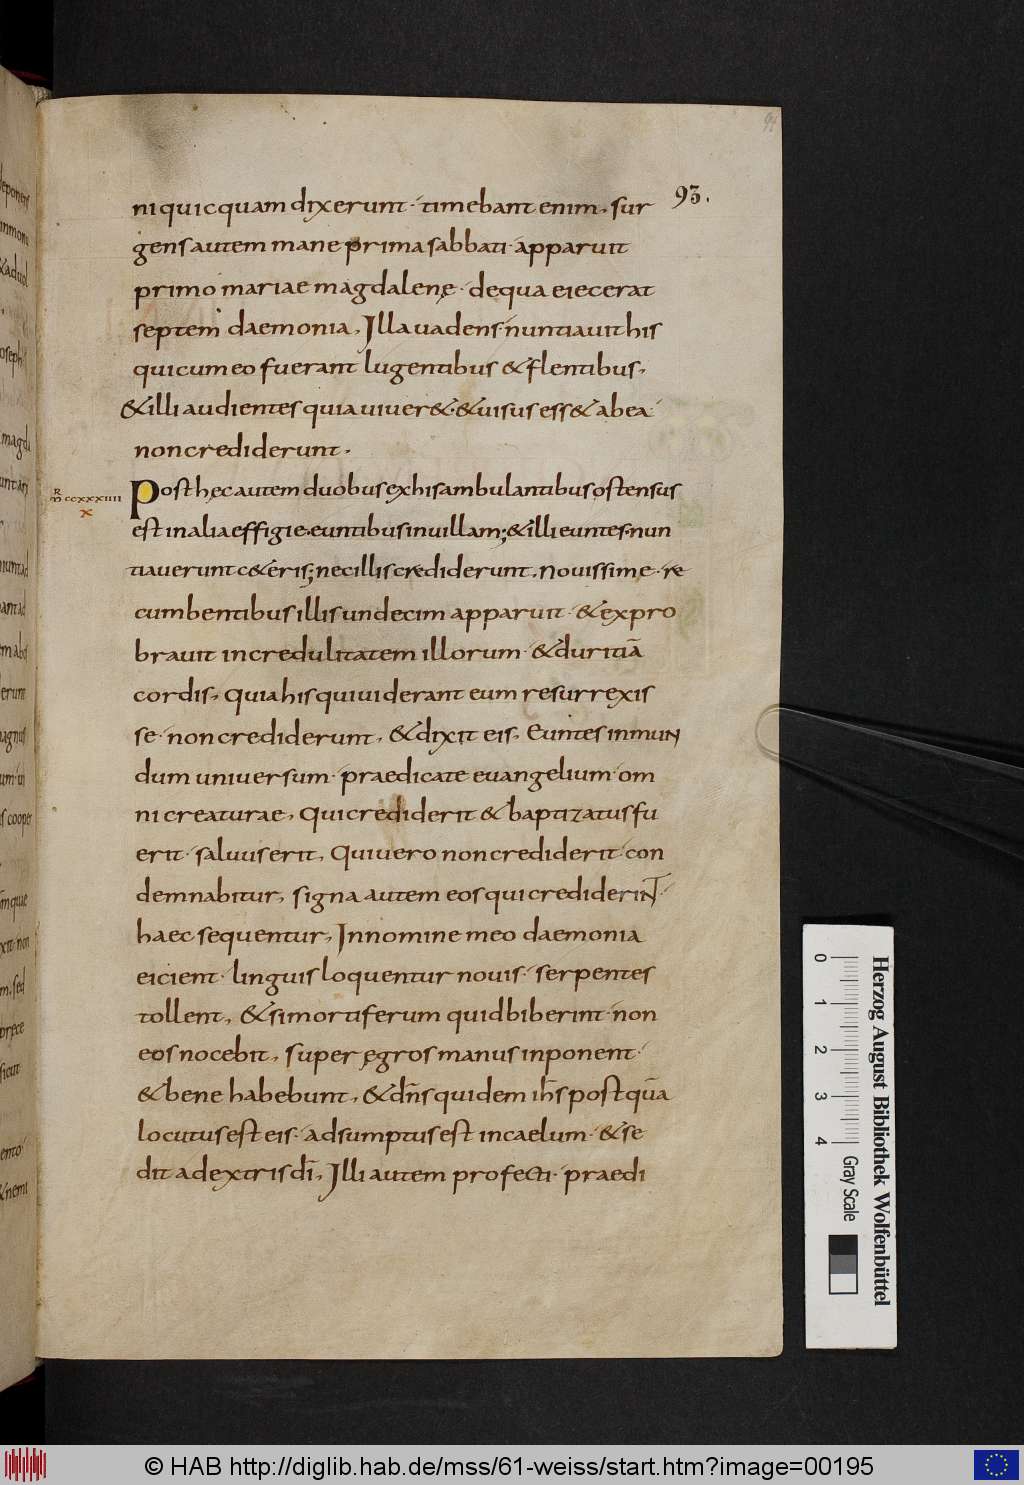 93.
ni quicquam dixerunt· timebant enim, sur
gens autem mane prima sabbati· apparuit
primo mariae magdalenę· de qua eiecerat
septem daemonia, Illa uadens· nuntiauit his
qui cum eo fuerant lugentibus & flentibus,
& illi audientes quia uiuer&· & uisus ess& abea·
non crediderunt.
R
M CCXXXIIII
X
Post hęc autem duobus ex his ambulantibus ostensus
est in alia effigie· euntibus in uillam; & illi euntes· nun
tiauerunt c&eris; nec illis crediderunt, Nouissime· re
cumbentibus illis undecim apparuit· & expro
brauit incredulitatem illorum· & duritiā
cordis, quia his qui uiderant eum resurrexis
se· non crediderunt, & dixit eis, Euntes in mun
dum uniuersum· praedicate euangelium· om
ni creaturae, Qui crediderit & baptizatus fu
erit· saluus erit, Qui uero non crediderit· con
demnabitur, signa autem eos qui crediderint·
haec sequentur, In nomine meo daemonia
eicient· linguis loquentur nouis· serpentes
tollent, & si mortiferum quid biberint· non
eos nocebit, super ęgros manus inponent·
& bene habebunt, & dn̄s quidem ih̄s postquā
locutus est eis· adsumptus est in caelum· & se
dit ad extris dī, Illi autem profecti· praedi
0 1 2 3 4
Gray Scale
Herzog August Bibliothek Wolfenbüttel
© HAB http://diglib.hab.de/mss/61-weiss/start.htm?image=00195